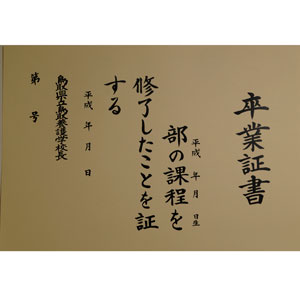 卒業証書
平成 年 月 日生
部の課程を
修了したことを証
する
平成 年 月 日
鳥取県立鳥取養護学校長
第 号